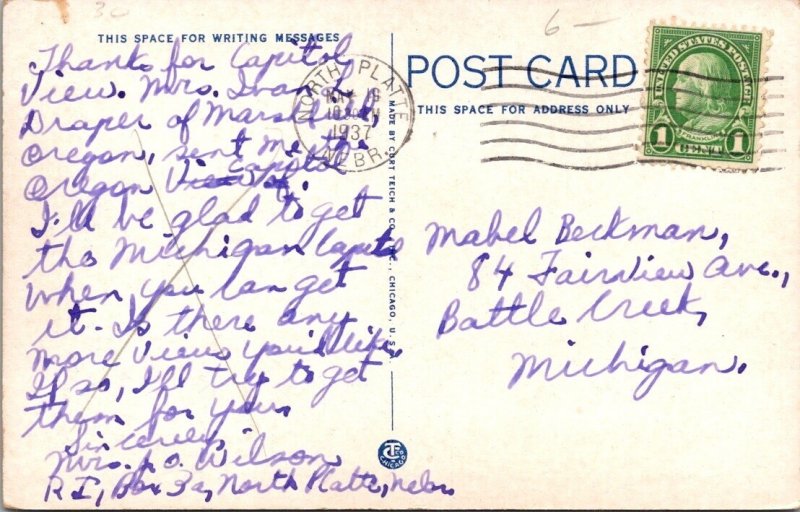 THIS SPACE FOR WRITING MESSAGES
Thanks for Capitol
View. Mrs. Ivan L.
Draper of Marshfield,
Oregon, sent me the
Oregon Capitol View.
I'll be glad to get
the Michigan Capitol
when you can get
it. Is there any
more views you'd like.
If so, I'll try to get
them for you.
Sincerely,
Mrs. J. O. Wilson
R I, Box 3a, North Platte, Nebr.
NORTH PLATTE
1937
NEBR.
MADE BY CURT TEICH & CO., INC., CHICAGO, U.S.A.
CHICAGO
6 —
POST CARD
THIS SPACE FOR ADDRESS ONLY
UNITED STATES POSTAGE
FRANKLIN
1 CENT 1
Mabel Beckman,
84 Fairview Ave.,
Battle Creek,
Michigan.